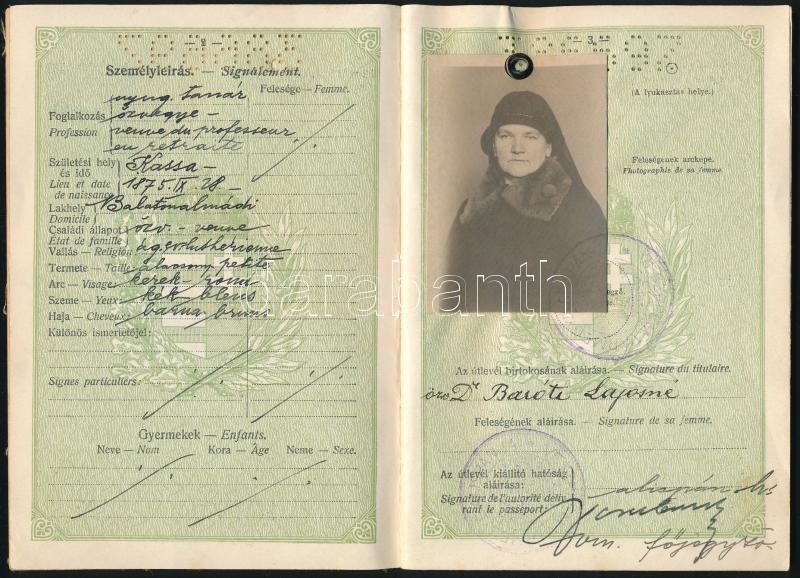 — 2 —
Személyleirás. — Signalement.
Felesége — Femme.
nyug. tanár
Foglalkozás özvegye —
Profession veuve du professeur
en retraite
Születési hely
és idő Kassa —
Lieu et date
de naissance 1875. IX. 28 —
Lakhely Balatonalmádi
Domicile
Családi állapot özv. — veuve
État de famille
Vallás — Religion ág. ev. luthérienne
Termete — Taille alacsony petite
Arc — Visage: kerek
Szeme — Yeux: kék bleus
Haja — Cheveux: barna bruns
Különös ismertetőjel:
Signes particuliers:
Gyermekek — Enfants.
Neve — Nom Kora — Âge Neme — Sexe.
— 3 —
(A lyukasztás helye.)
Feleségének arcképe.
Photographie de sa femme.
Az útlevél birtokosának aláírása. — Signature du titulaire.
özv Dr Baróti Lajosné
Feleségének aláírása. — Signature de sa femme.
Az útlevél kiállító hatóság
aláírása:
Signature de l'autorité déliv-
rant le passeport:
alispán h.
vm. főjegyző
darabanth